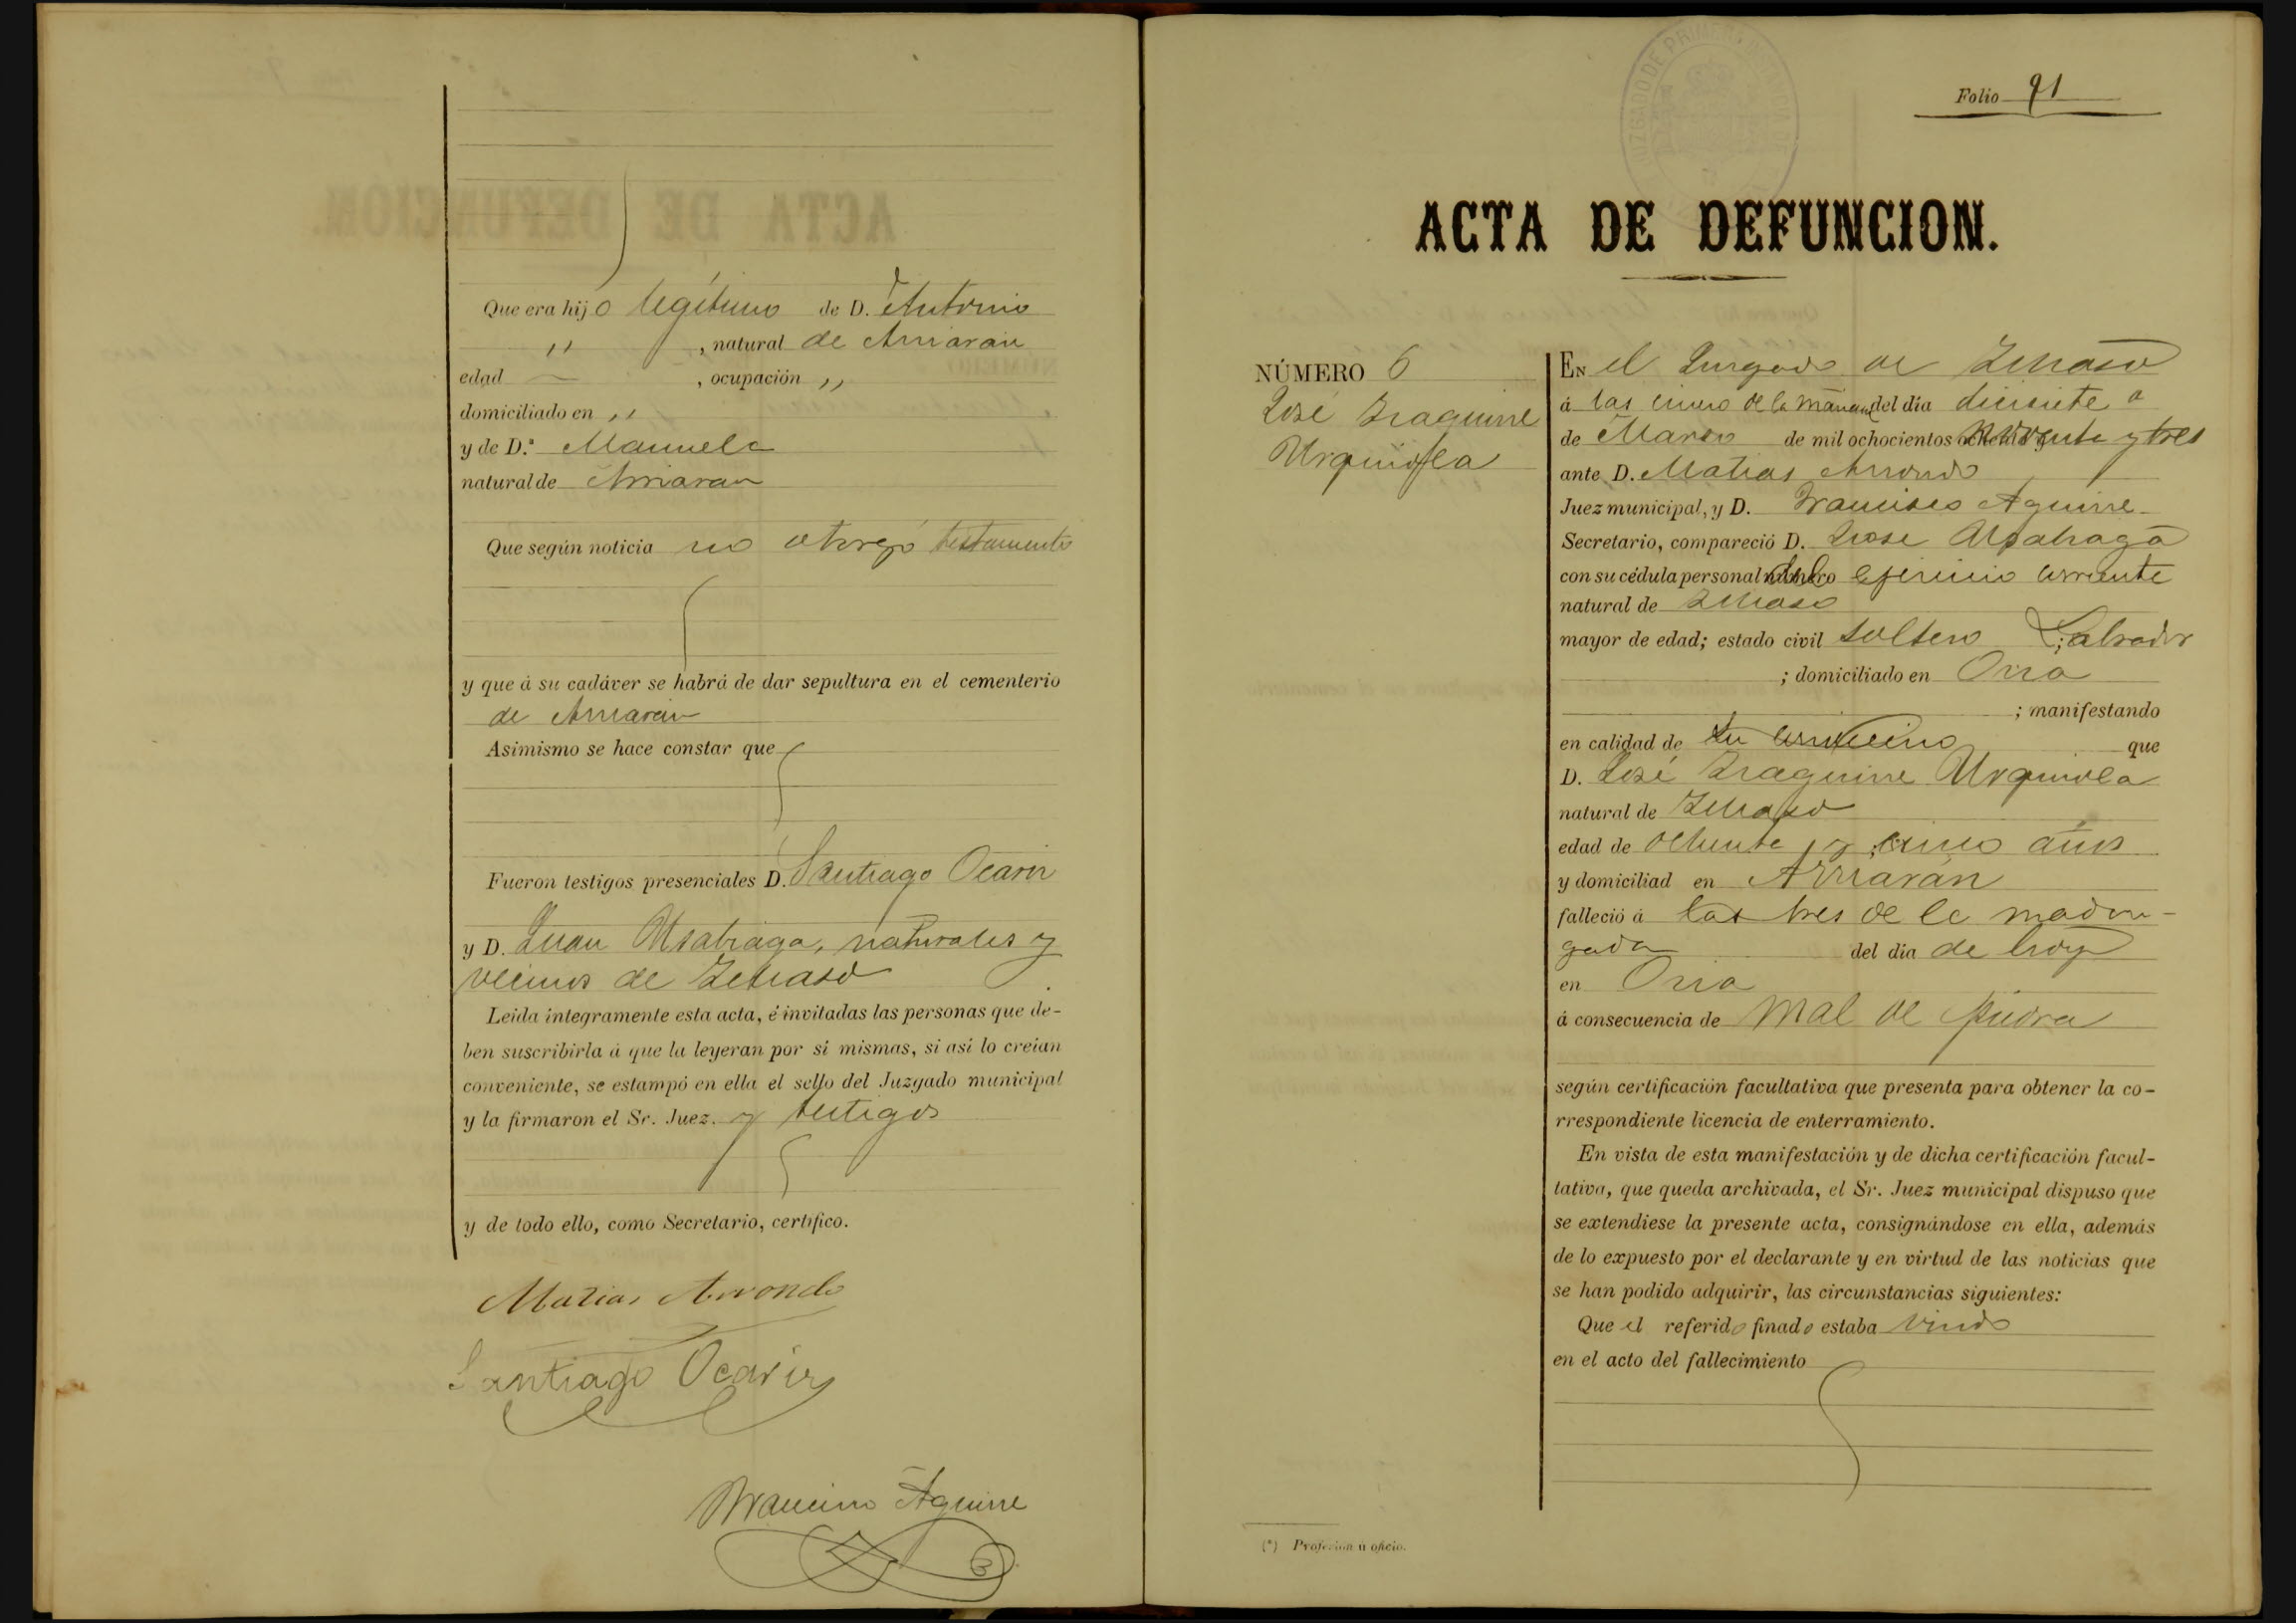 Que era hijo legítimo de D. Antonio
" , natural de Arriaran
edad — , ocupación "
domiciliado en "
y de D.ª Manuela
natural de Arriaran
Que según noticia no otorgó testamento
y que á su cadáver se habrá de dar sepultura en el cementerio
de Arriaran
Asimismo se hace constar que
Fueron testigos presenciales D. Santiago Ocariz
y D. Juan Usabiaga, naturales y
vecinos de
Leida integramente esta acta, é invitadas las personas que de-
ben suscribirla á que la leyeran por si mismas, si así lo creían
conveniente, se estampó en ella el sello del Juzgado municipal
y la firmaron el Sr. Juez. y testigos
y de todo ello, como Secretario, certifico.
Matias Arrondo
Santiago Ocariz
Francisco Aguirre
Folio 91
ACTA DE DEFUNCION.
NÚMERO 6
José Iraguirre
Urquiola
EN el Juzgado de
á las cinco de la mañana del día diecisiete
de Marzo de mil ochocientos noventa y tres
ante D. Matias Arrondo
Juez municipal, y D. Francisco Aguirre
Secretario, compareció D. José
con su cédula personal número del ejercicio corriente
natural de
mayor de edad; estado civil soltero ; Labrador
; domiciliado en Oria
; manifestando
en calidad de su que
D. José Iraguirre Urquiola
natural de
edad de ochenta y cinco años
y domiciliad en Arriarán
falleció á las tres de la madru-
gada del día de hoy
en Oria
á consecuencia de Mal de piedra
según certificación facultativa que presenta para obtener la co-
rrespondiente licencia de enterramiento.
En vista de esta manifestación y de dicha certificación facul-
tativa, que queda archivada, el Sr. Juez municipal dispuso que
se extendiese la presente acta, consignándose en ella, además
de lo expuesto por el declarante y en virtud de las noticias que
se han podido adquirir, las circunstancias siguientes:
Que el referido finado estaba viudo
en el acto del fallecimiento
(*) Profesion ú oficio.